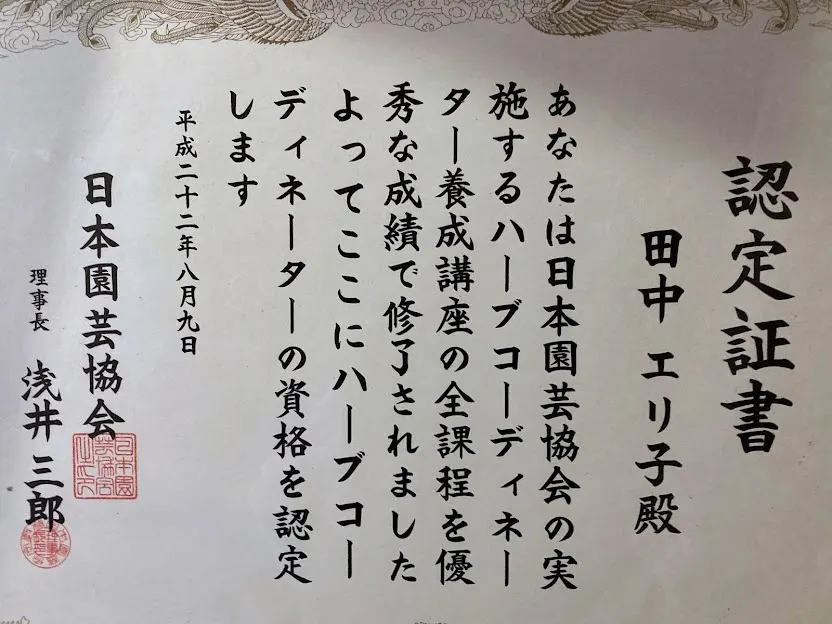 認定証書
田中 エリ子殿
あなたは日本園芸協会の実
施するハーブコーディネー
ター養成講座の全課程を優
秀な成績で修了されました
よってここにハーブコー
ディネーターの資格を認定
します
平成二十二年八月九日
日本園芸協会
理事長 浅井 三郎